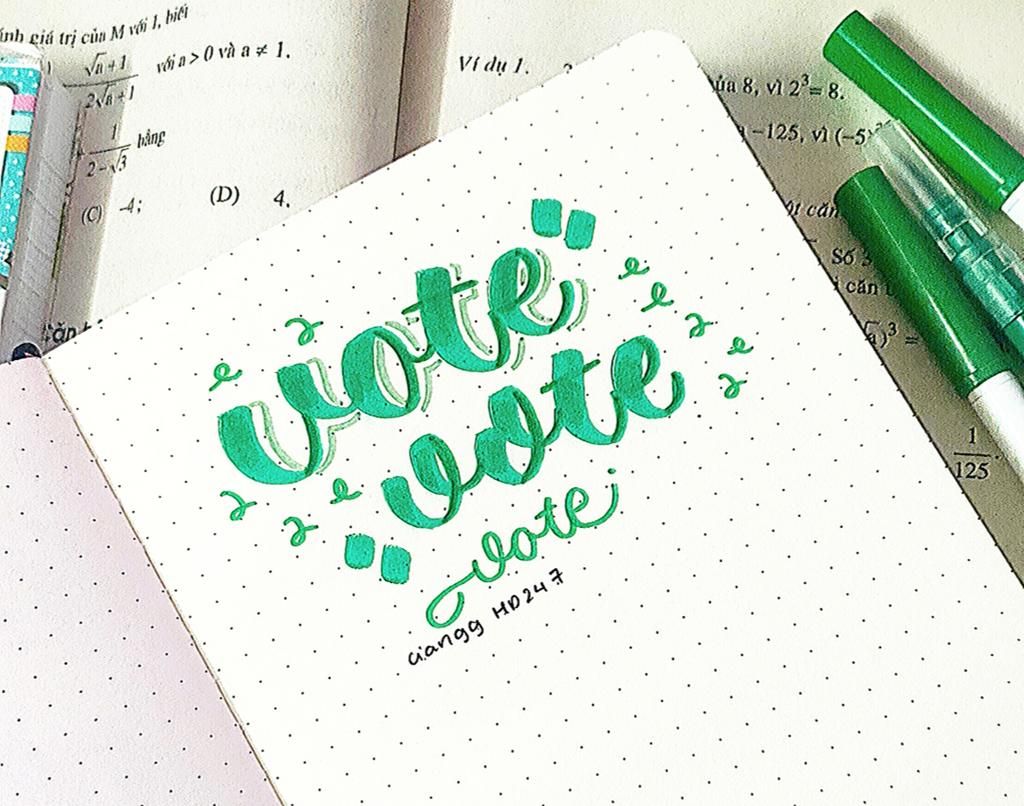 giá trị của M với 1, biết
√a+1 / 2√a+1 với a > 0 và a ≠ 1.
1 / 2-√3 bằng
(C) -4; (D) 4.
Ví dụ 1.
8, vì 2³ = 8.
-125, vì (-5)
căn
Số
căn
)³ =
1 / 125
vote
vote
vote
giangg HD247